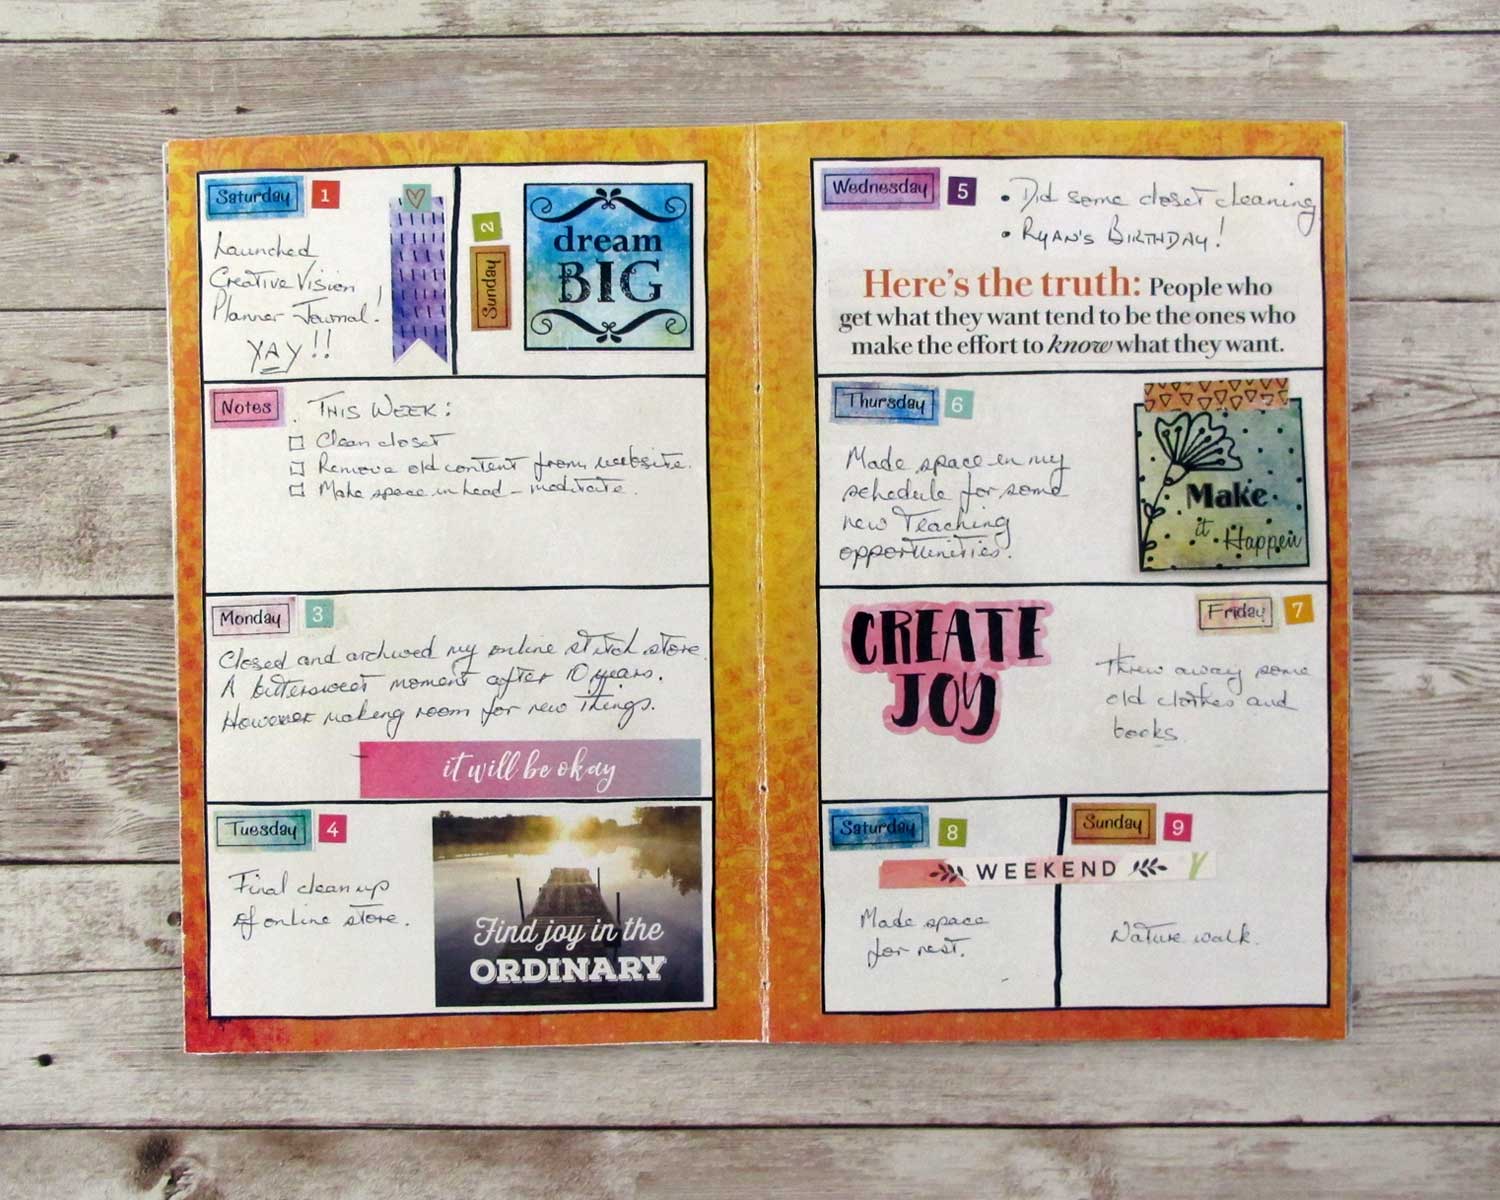 Saturday 1
Launched
Creative Vision
Planner Journal!
YAY!!
2
Sunday
dream
BIG
Notes
THIS WEEK:
Clean closet
Remove old content from website.
Make space in head - meditate.
Monday 3
Closed and archived my online stitch store.
A bittersweet moment after 10 years.
However making room for new things.
it will be okay
Tuesday 4
Final clean up
of online store.
Find joy in the
ORDINARY
Wednesday 5
• Did some closet cleaning
• RYAN'S BIRTHDAY!
Here's the truth: People who
get what they want tend to be the ones who
make the effort to know what they want.
Thursday 6
Made space in my
schedule for some
new Teaching
opportunities.
Make
it Happen
CREATE
JOY
Friday 7
Threw away some
old clothes and
books.
Saturday 8
Sunday 9
WEEKEND
Made space
for rest.
Nature walk.